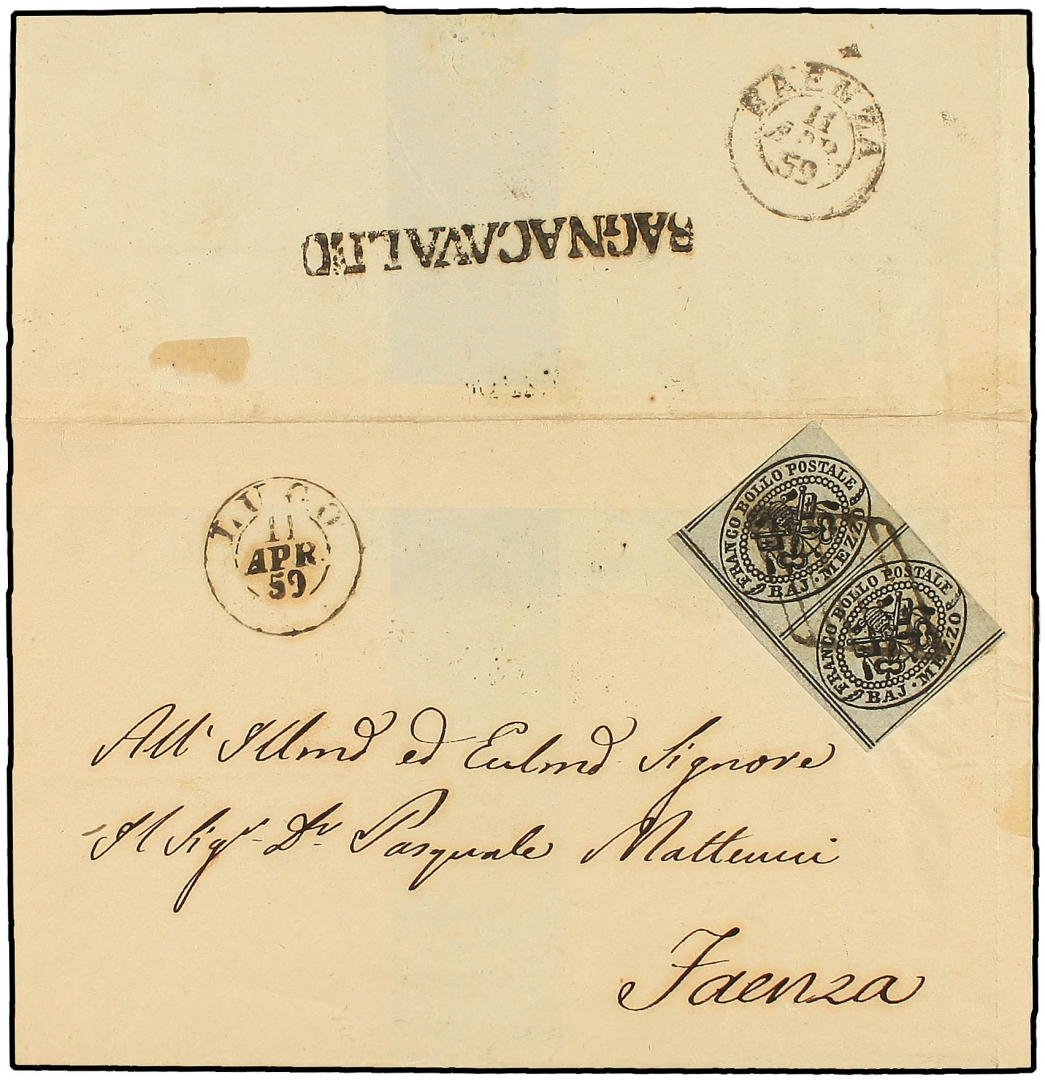 FAENZA
11
APR
59
BAGNACAVALLO
LUGO
11
APR
59
FRANCO BOLLO POSTALE
BAJ. MEZZO
FRANCO BOLLO POSTALE
BAJ. MEZZO
All' Illmo ed Ecclmo Signore
Il Sigr. Dr. Pasquale Matteucci
Faenza